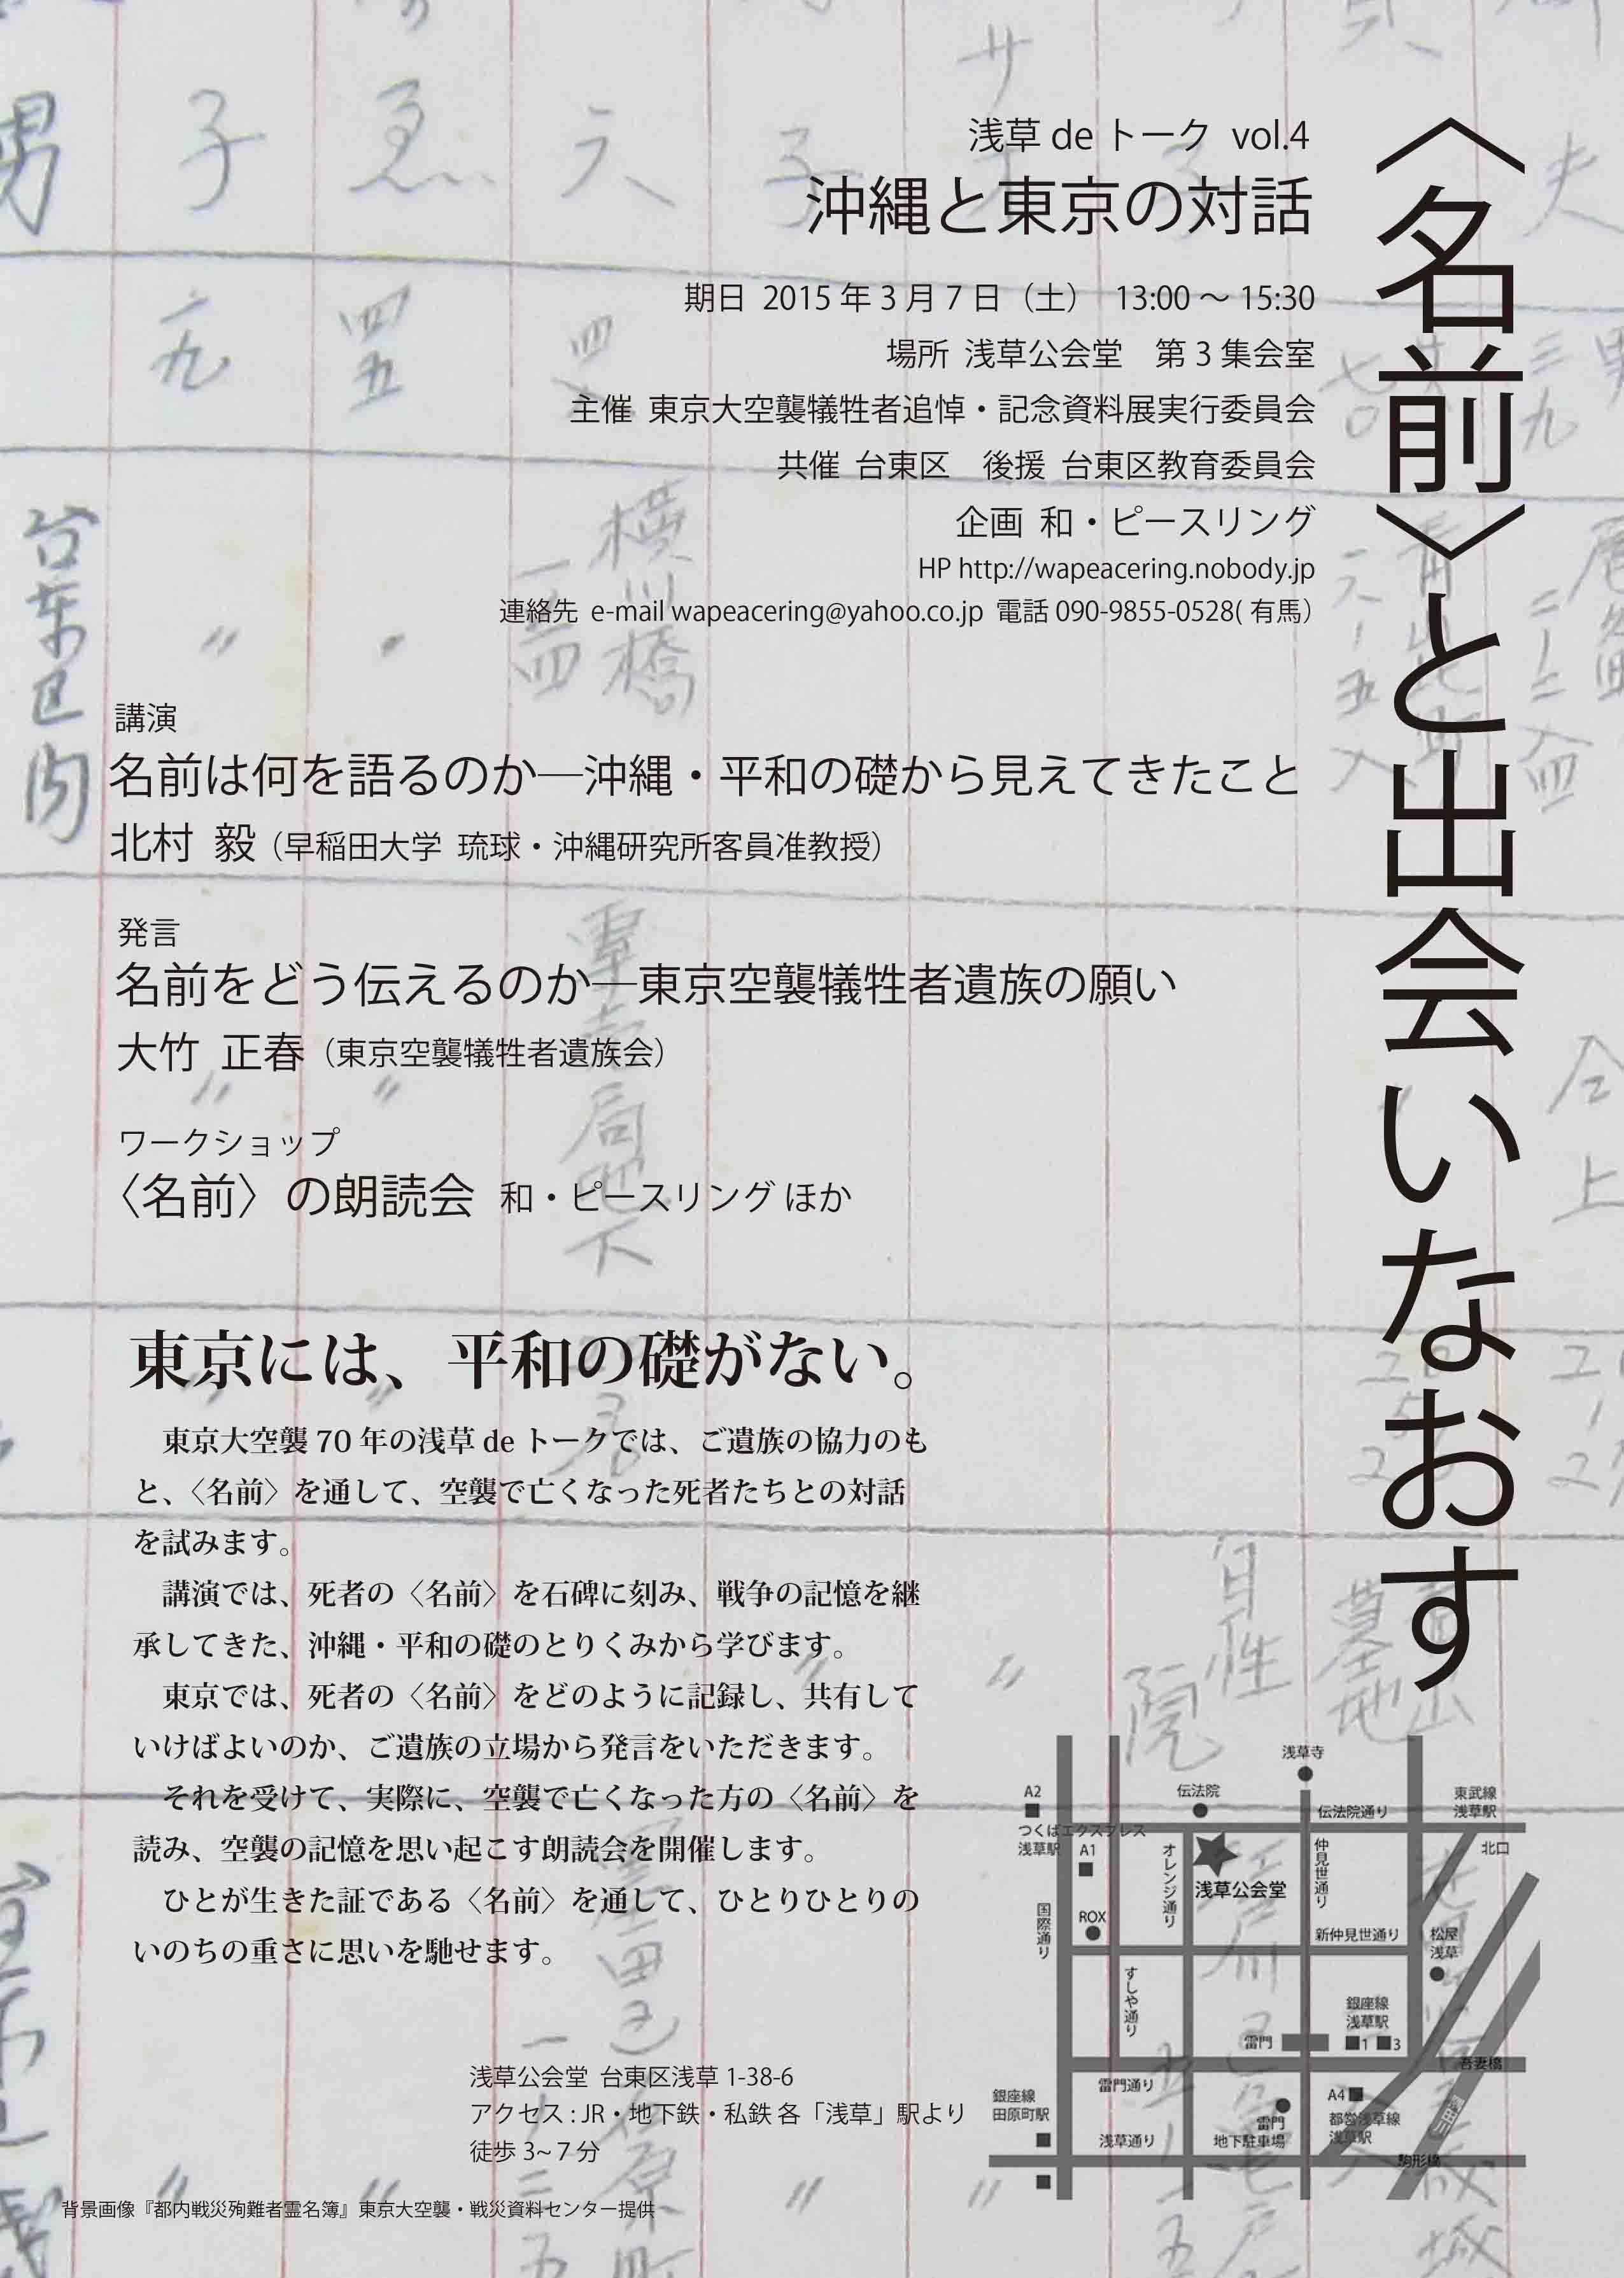 〈名前〉と出会いなおす
浅草 de トーク vol.4
沖縄と東京の対話
期日 2015 年 3 月 7 日（土） 13:00 〜 15:30
場所 浅草公会堂　第 3 集会室
主催 東京大空襲犠牲者追悼・記念資料展実行委員会
共催 台東区　後援 台東区教育委員会
企画 和・ピースリング
HP http://wapeacering.nobody.jp
連絡先 e-mail wapeacering@yahoo.co.jp 電話 090-9855-0528( 有馬）
講演
名前は何を語るのか─沖縄・平和の礎から見えてきたこと
北村 毅（早稲田大学 琉球・沖縄研究所客員准教授）
発言
名前をどう伝えるのか─東京空襲犠牲者遺族の願い
大竹 正春（東京空襲犠牲者遺族会）
ワークショップ
〈名前〉の朗読会 和・ピースリング ほか
東京には、平和の礎がない。
東京大空襲 70 年の浅草 de トークでは、ご遺族の協力のも
と、〈名前〉を通して、空襲で亡くなった死者たちとの対話
を試みます。
講演では、死者の〈名前〉を石碑に刻み、戦争の記憶を継
承してきた、沖縄・平和の礎のとりくみから学びます。
東京では、死者の〈名前〉をどのように記録し、共有して
いけばよいのか、ご遺族の立場から発言をいただきます。
それを受けて、実際に、空襲で亡くなった方の〈名前〉を
読み、空襲の記憶を思い起こす朗読会を開催します。
ひとが生きた証である〈名前〉を通して、ひとりひとりの
いのちの重さに思いを馳せます。
浅草公会堂 台東区浅草 1-38-6
アクセス : JR・地下鉄・私鉄 各「浅草」駅より
徒歩 3~ 7 分
背景画像『都内戦災殉難者霊名簿』東京大空襲・戦災資料センター提供
浅草寺
A2
伝法院
伝法院通り
東武線
浅草駅
つくばエクスプレス
浅草駅
A1
北口
オレンジ通り
浅草公会堂
仲見世通り
国際通り
ROX
新仲見世通り
松屋
浅草
すしや通り
銀座線
浅草駅
1 3
雷門
吾妻橋
雷門通り
銀座線
田原町駅
A4
都営浅草線
浅草駅
雷門
地下駐車場
浅草通り
駒形橋
男
子
六
夫
一九
四五
台東区内
横川橋
一ノ四
合
上
自性院
墓地